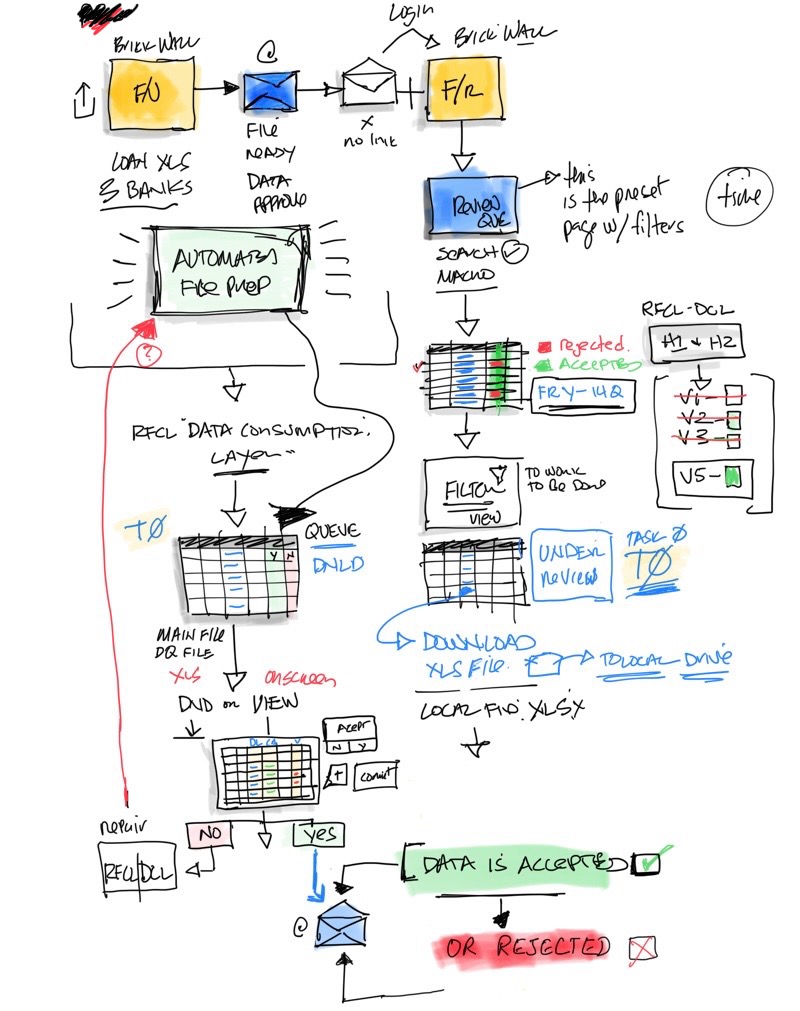 Login
BRICK WALL
@
BRICK WALL
F/U
F/R
x
no link
FILE
READY
DATA
APPROVE
LOAN XLS
BANKS
this
is the preset
page w/ filters
REVIEW
QUE
SEARCH
MACRO
AUTOMATED
FILE PREP
?
RFCL-DCL
H1 & H2
rejected.
ACCEPTED
FRY-14Q
V1-
V2-
V3-
V5-
RFCL "DATA CONSUMPTION
LAYER"
FILTER
VIEW
TO WORK
TO BE DONE
TØ
QUEUE
DNLD
Y N
UNDER
REVIEW
TASK Ø
TØ
MAIN FILE
DQ FILE
XLS
onscreen
DND or VIEW
DOWNLOAD
XLS FILE.
TO LOCAL DRIVE
LOCAL XLSX
ACEPT
N Y
+
COMMIT
repair
NO
YES
RFCL/DCL
DATA IS ACCEPTED
@
OR REJECTED